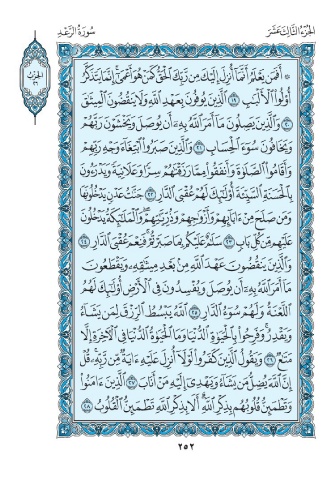 الجزء الثالث عشر
سورة الرعد
۞ أَفَمَن يَعْلَمُ أَنَّمَا أُنزِلَ إِلَيْكَ مِن رَّبِّكَ الْحَقُّ كَمَنْ هُوَ أَعْمَىٰ إِنَّمَا يَتَذَكَّرُ
أُولُوا الْأَلْبَٰبِ ١٩ الَّذِينَ يُوفُونَ بِعَهْدِ اللَّهِ وَلَا يَنقُضُونَ الْمِيثَٰقَ
٢٠ وَالَّذِينَ يَصِلُونَ مَا أَمَرَ اللَّهُ بِهِ أَن يُوصَلَ وَيَخْشَوْنَ رَبَّهُمْ
وَيَخَافُونَ سُوءَ الْحِسَابِ ٢١ وَالَّذِينَ صَبَرُوا ابْتِغَاءَ وَجْهِ رَبِّهِمْ
وَأَقَامُوا الصَّلَوٰةَ وَأَنفَقُوا مِمَّا رَزَقْنَٰهُمْ سِرًّا وَعَلَانِيَةً وَيَدْرَءُونَ
بِالْحَسَنَةِ السَّيِّئَةَ أُولَٰئِكَ لَهُمْ عُقْبَى الدَّارِ ٢٢ جَنَّٰتُ عَدْنٍ يَدْخُلُونَهَا
وَمَن صَلَحَ مِنْ ءَابَائِهِمْ وَأَزْوَٰجِهِمْ وَذُرِّيَّٰتِهِمْ وَالْمَلَٰئِكَةُ يَدْخُلُونَ
عَلَيْهِم مِّن كُلِّ بَابٍ ٢٣ سَلَٰمٌ عَلَيْكُم بِمَا صَبَرْتُمْ فَنِعْمَ عُقْبَى الدَّارِ ٢٤
وَالَّذِينَ يَنقُضُونَ عَهْدَ اللَّهِ مِن بَعْدِ مِيثَٰقِهِ وَيَقْطَعُونَ
مَا أَمَرَ اللَّهُ بِهِ أَن يُوصَلَ وَيُفْسِدُونَ فِي الْأَرْضِ أُولَٰئِكَ لَهُمُ
اللَّعْنَةُ وَلَهُمْ سُوءُ الدَّارِ ٢٥ اللَّهُ يَبْسُطُ الرِّزْقَ لِمَن يَشَاءُ
وَيَقْدِرُ وَفَرِحُوا بِالْحَيَوٰةِ الدُّنْيَا وَمَا الْحَيَوٰةُ الدُّنْيَا فِي الْآخِرَةِ إِلَّا
مَتَٰعٌ ٢٦ وَيَقُولُ الَّذِينَ كَفَرُوا لَوْلَا أُنزِلَ عَلَيْهِ ءَايَةٌ مِّن رَّبِّهِ قُلْ
إِنَّ اللَّهَ يُضِلُّ مَن يَشَاءُ وَيَهْدِي إِلَيْهِ مَنْ أَنَابَ ٢٧ الَّذِينَ ءَامَنُوا
وَتَطْمَئِنُّ قُلُوبُهُم بِذِكْرِ اللَّهِ أَلَا بِذِكْرِ اللَّهِ تَطْمَئِنُّ الْقُلُوبُ ٢٨
٢٥٢